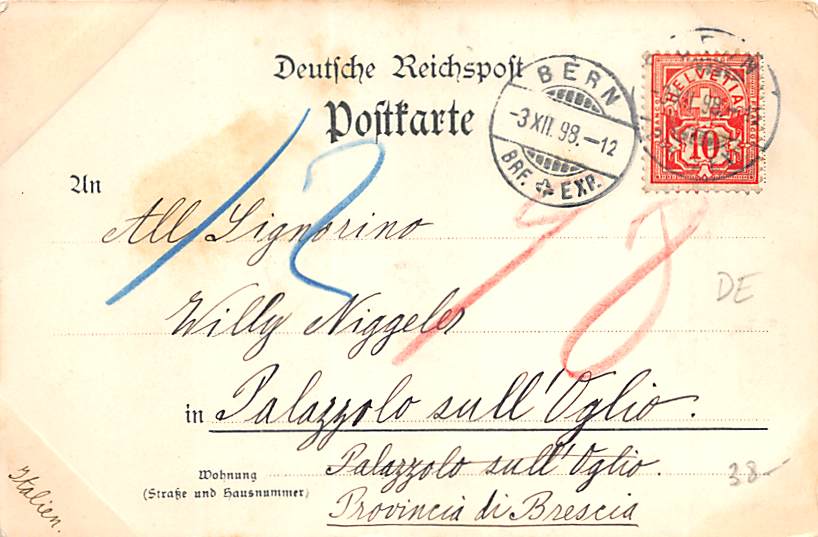 Deutsche Reichspost
Postkarte
BERN
-3 XII. 98.-12
BRF. EXP.
HELVETIA
10
An
All Signorino
Willy Niggeler
in Palazzolo sull'Oglio.
Wohnung
(Straße und Hausnummer)
Palazzolo sull'Oglio.
Provincia di Brescia
Italien.
12
DE
38-